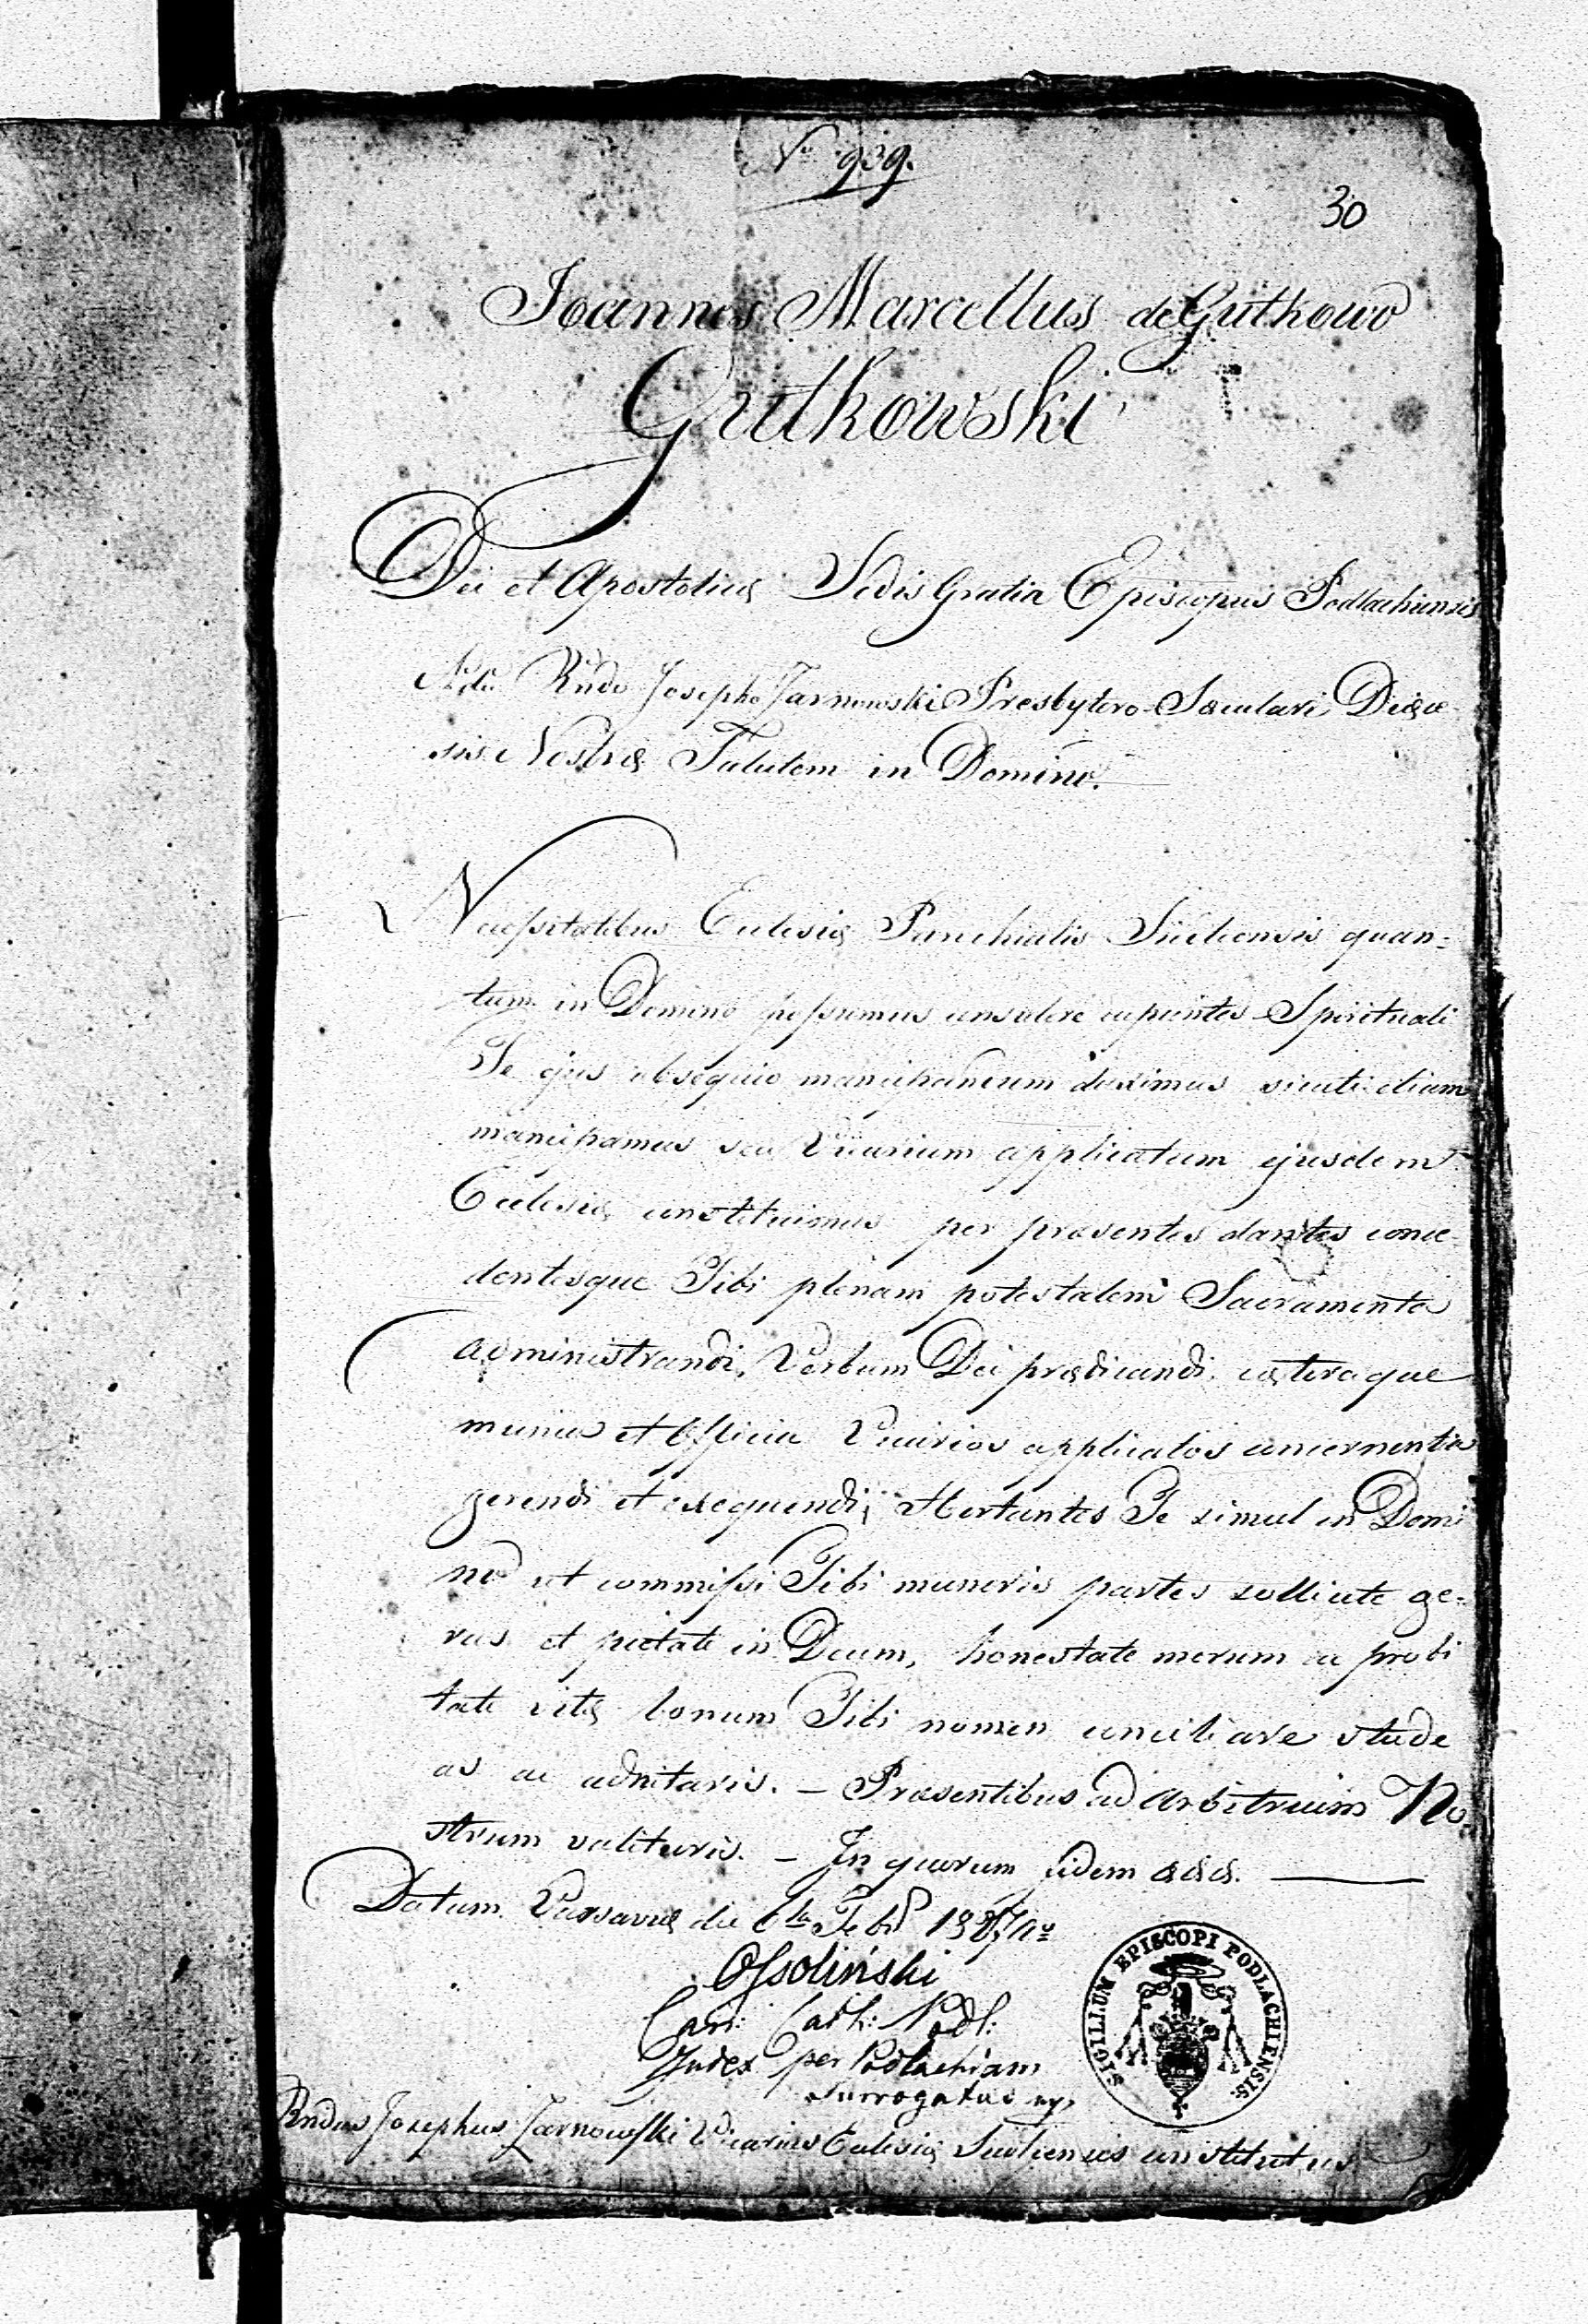 No 939.
30
Joannes Marcellus de Gutkowo
Gutkowski
Dei et Apostolicę Sedis Gratia Episcopus Podlachiensis
Rndo Josepho Jarnowski Presbytero Sæculari, Dięce-
sis Nostrę Salutem in Domino.
Necessitatibus Ecclesię Parochialis Siedlcensis quan=
tum in Domino possumus consulere cupientes Spirituali
Te ejus obsequio mancipandum duximus sicuti etiam
mancipamus seu Vicarium applicatum ejusdem
Ecclesię constituimus per præsentes dantes conce-
dentesque Tibi plenam potestatem Sacramenta
administrandi, Verbum Dei prędicandi, cęteraque
munia et Officia Vicarios applicatos concernentia
gerendi et exequendi; Hortantes Te simul in Domi
no ut commissi Tibi muneris partes sollicite ge=
ras et pietate in Deum, honestate morum ac probi
tate vitę bonum Tibi nomen conciliare stude
as ac adnitaris. – Præsentibus ad Arbitrium No-
strum valituris. – In quorum fidem
Datum Varsavię die 6ta Febr 1837 Ao
Ossoliński
Can: Cath: Podl:
Judex per Podlachiam
Surrogatus
SIGILLUM EPISCOPI PODLACHIENSIS
Rndus Josephus Jarnowski Vicarius Ecclesię Siedlcensis constitutus